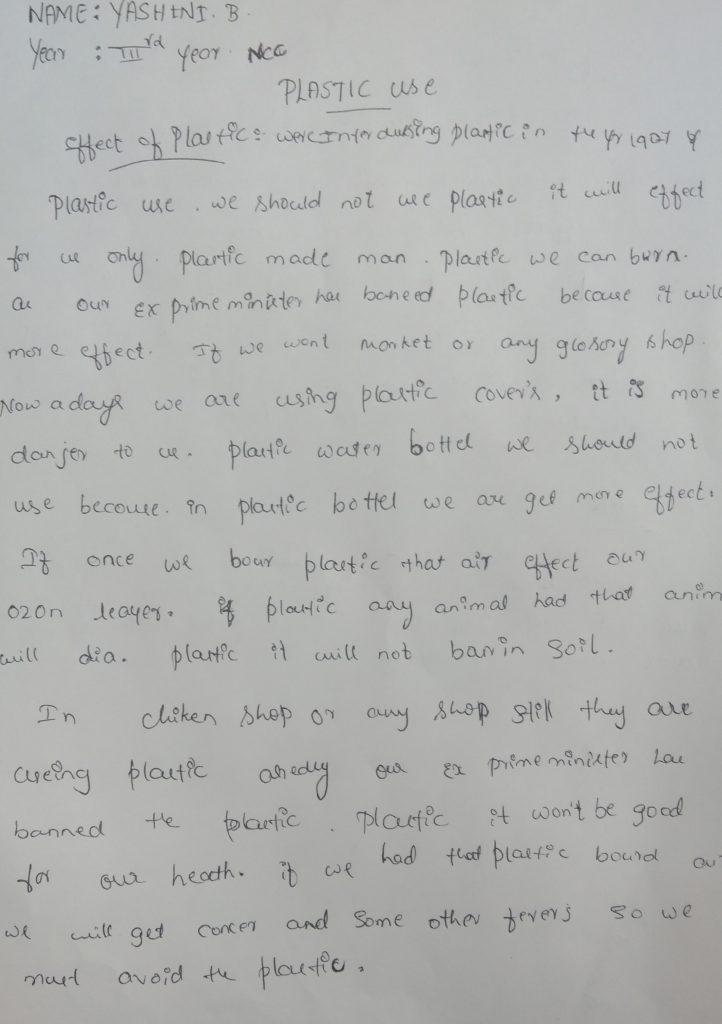 NAME: YASHINI. B.
Year : IIIrd year. NCC
PLASTIC use
Effect of Plastic: were Inter dusing plastic in the yr 1907 of
plastic use. we should not use plastic it will effect
for us only. plastic made man. plastic we can burn.
as our Ex prime minister has baneed plastic because it will
more effect. If we want market or any glosory shop.
Now a days we are using plastic cover's, it is more
danjer to us. plastic water bottel we should not
use becouse. in plastic bottel we are get more effect.
If once we bour plastic that air effect our
ozon leayer. if plastic any animal had that anim
will dia. plastic it will not barin soil.
In chiken shop or any shop still they are
useing plastic aredy our Ex prime minister has
banned the plastic. Plastic it won't be good
for our heath. if we had that plastic bound ou
we will get concer and some other fevers so we
must avoid the plastic.